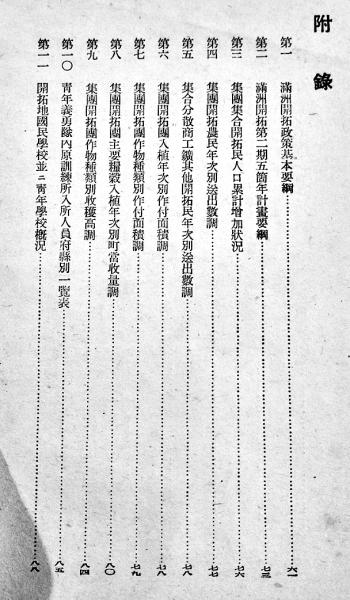 附錄
第一 滿洲開拓政策基本要綱……六一
第二 滿洲開拓第二期五箇年計畫要綱……七三
第三 集團集合開拓民人口累計增加狀況……七六
第四 集團開拓農民年次別送出數調……七七
第五 集合分散商工鑛其他開拓民年次別送出數調……七八
第六 集團開拓團入植年次別作付面積調……七八
第七 集團開拓團作物種類別作付面積調……七九
第八 集團開拓團主要糧穀入植年次別町當收量調……八〇
第九 集團開拓團作物種類別收穫高調……八四
第一〇 靑年義勇隊內原訓練所入所人員府縣別一覽表……八五
第一一 開拓地國民學校並ニ靑年學校槪況……八八